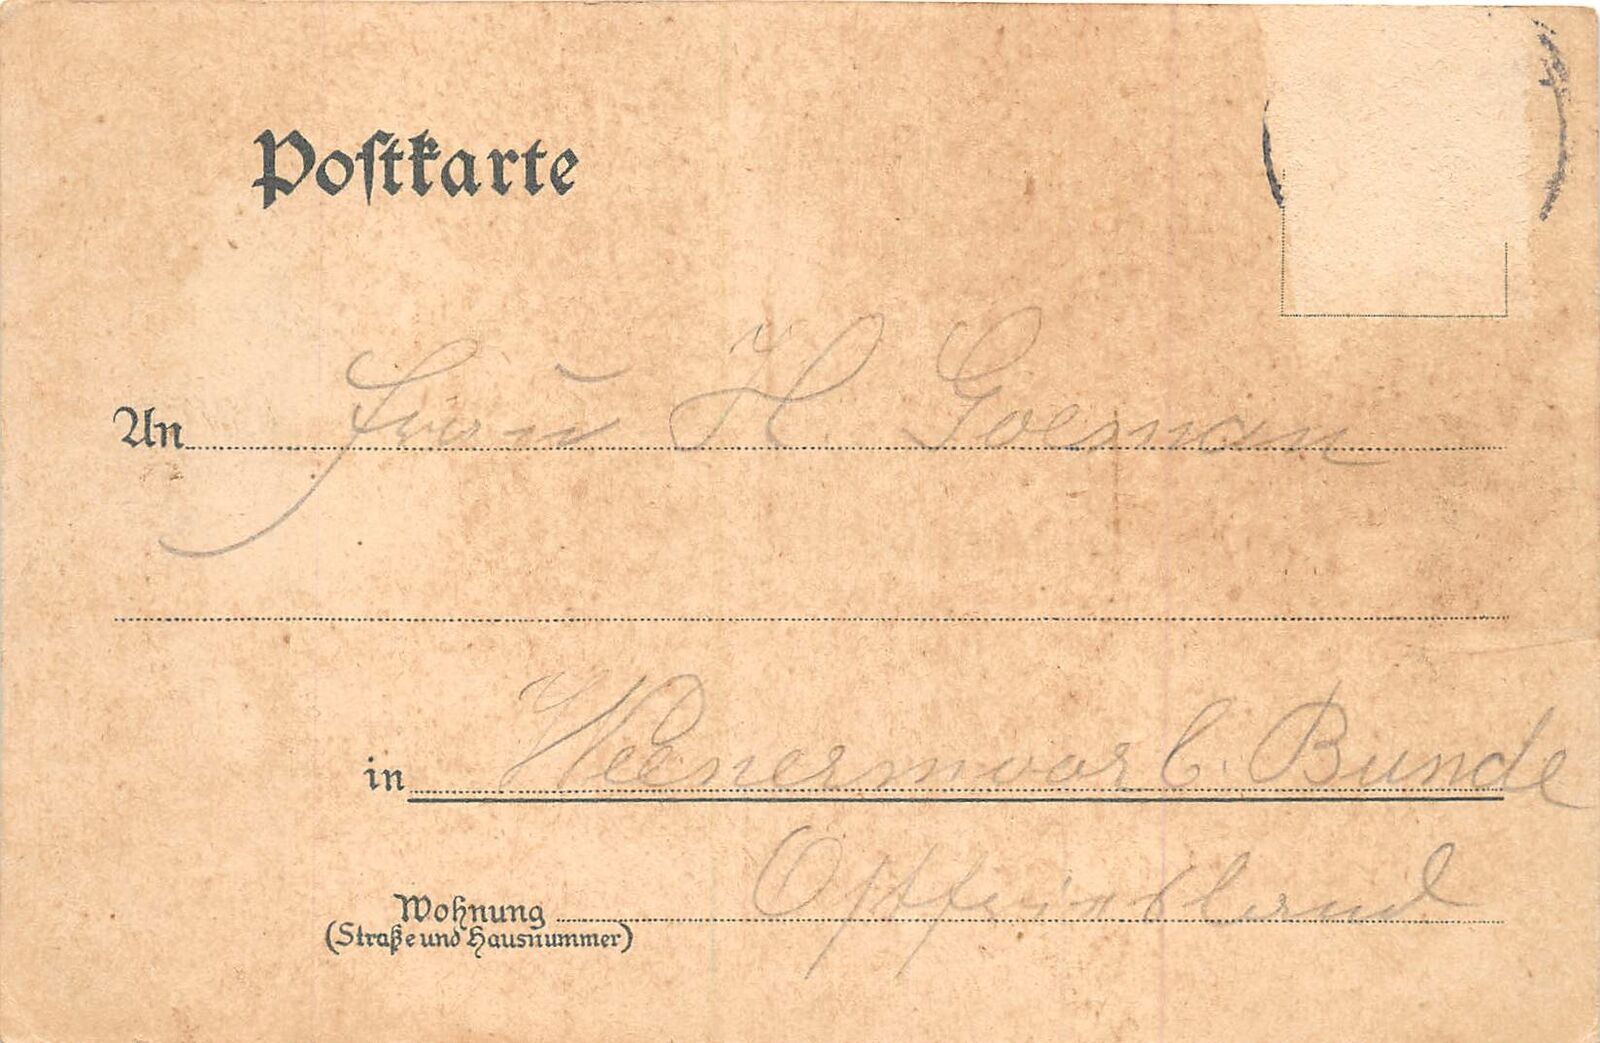 Postkarte
An Frau H. Goeman
in Weenermoor b. Bunde
Ostfriesland
Wohnung
(Straße und Hausnummer)